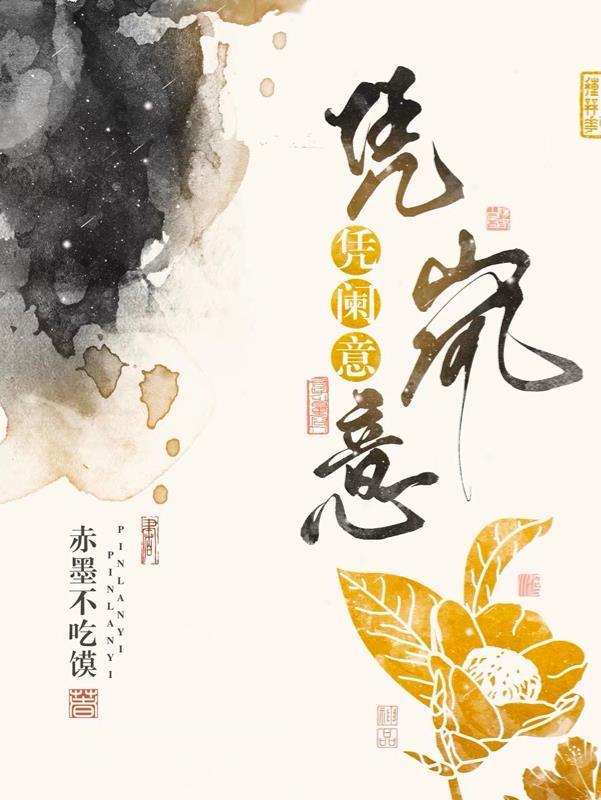 凭岚意
凭阑意
赤墨不吃馍
PINLANYI
PINLANYI
著
神品